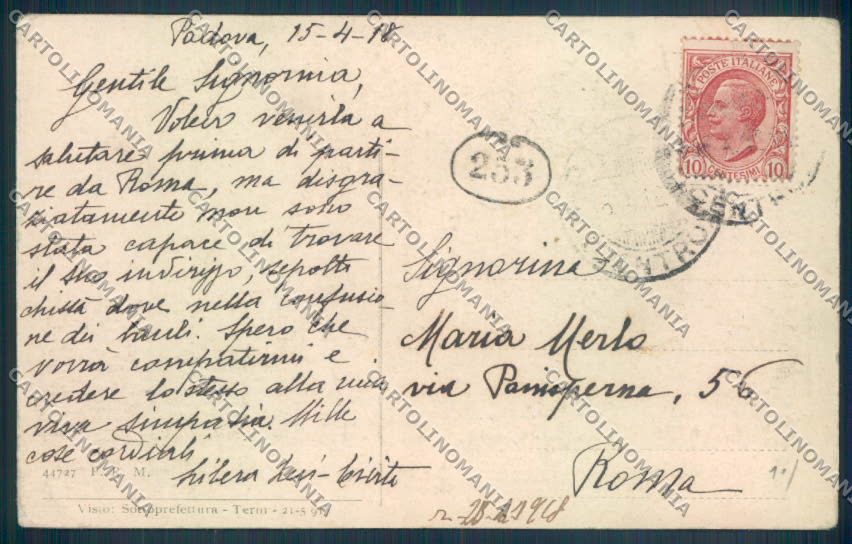 Padova, 15-4-18
Gentile Signorina,
Volevo venirla a
salutare prima di parti-
re da Roma, ma disgra-
ziatamente non sono
stata capace di trovare
il suo indirizzo, sepolto
chissà dove nella confusio-
ne dei bauli. Spero che
vorrà compatirmi e
credere lo stesso alla mia
viva simpatia. Mille
cose cordiali
44727 P. F. M.
Visto: Sottoprefettura - Terni - 21-5 917
POSTE ITALIANE
10 CENTESIMI 10
253
CENTRO
Signorina
Maria Merlo
via Panisperna, 56
Roma
CARTOLINOMANIA